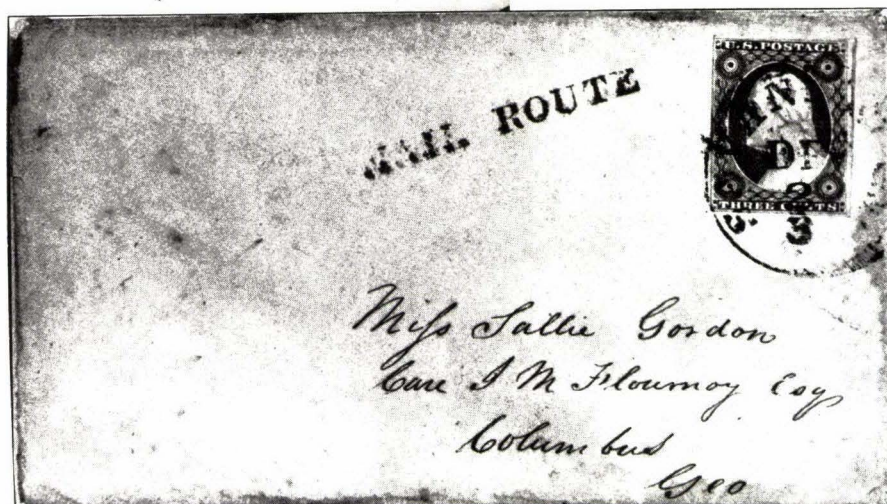 MAIL ROUTE
U.S. POSTAGE
THREE CENTS
Miss Sallie Gordon
Care J M Flournoy Esq
Columbus
Geo